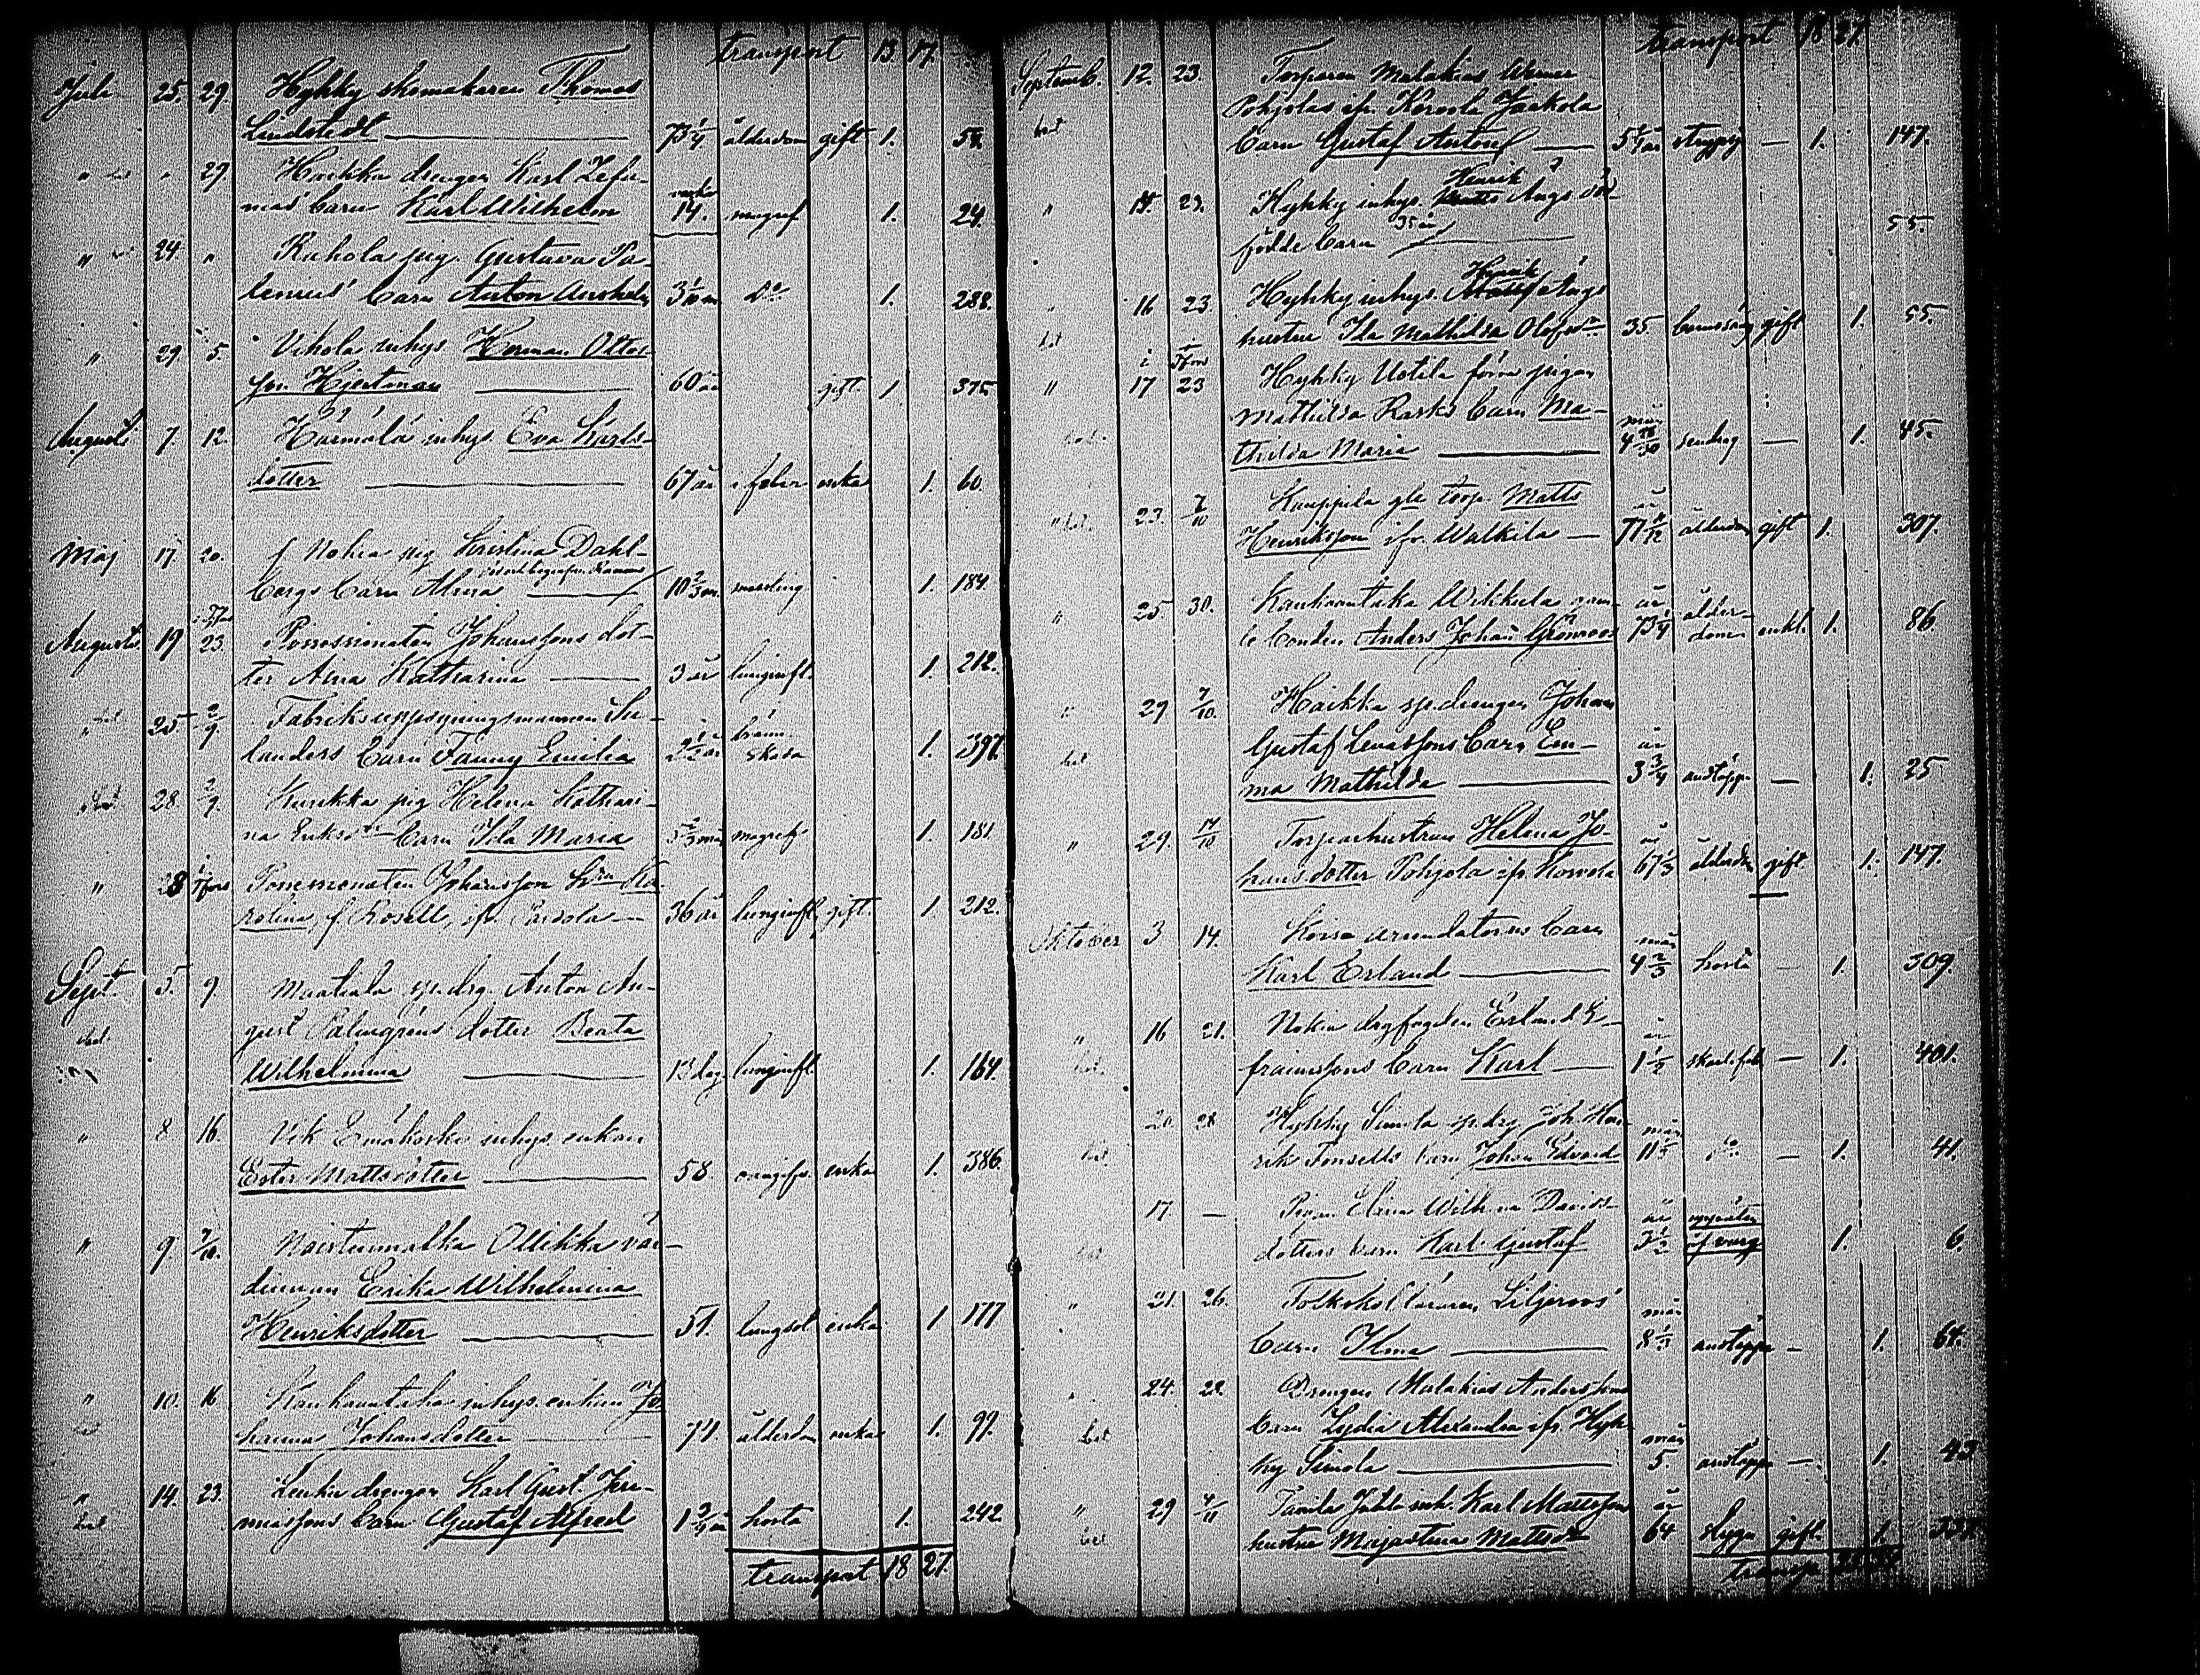 transport 13. 17.
Juli 25. 29. Hyhky skomakaren Thomas
Lindstedt 73 1/4 ålderdom gift 1. 58.
" " 29 Haikka drengen Karl Zefa-
nias barn Karl Wilhelm 14. magref 1. 24.
" 24 " Kuhola pig. Gustava Pa-
lenius' barn Anton 3 1/10 m do 1. 288.
" 29 5. Vihola inhys. Herman Otto-
son Hjertman 60 år gift 1 375
Augusti 7. 12. Härmälä inhys. Eva Karls-
dotter 67 år feber enka 1. 60
Maj 17. 20. f. Nokia pig Kristina Dahl-
bergs barn Alma 10 2/3 m. messling 1. 184.
Augusti 19 23. Possessionaten Johanssons dot-
ter Aina Katharina 3 år lunginfl. 1. 212.
" 25 2/9 Fabriksuppsyningsmannen Su-
landers barn Fanny Emilia 2 1/2 år bränn-
skada 1. 397.
28 2/9. Kurikka pig Helena Kathari-
na Eriksdr barn Ida Maria 5 2/3 mån magref. 1. 181
" 28 Possessionaten Johansson hru Ka-
rolina f. Rosell, ifr. 36 år lunginfl. gift. 1 212.
Sept. 5. 9. Maatiala sp.drg. Anton Au-
gust Palmgrens dotter Beata
Wilhelmina 13 dag lunginfl 1. 164.
" 8 16. Vik Emäkoski inhys. enkan
Ester Mattsdotter 58. enka 1. 386.
" 9. 7/10. Noistenmatka Ollikka vär-
dinnan Erika Wilhelmina
Henriksdotter 51. lungsot enka 1 177
" 10. 16 Kauhauntaka inhys. enkan Jo-
hanna Johansdotter 74. ålderdom enka 1. 99.
" 14. 23. drengen Karl Gust. Jere-
miassons barn Gustaf Alfred 1 3/4 år hosta 1. 242
transport 18 27.
transport 18 27
Septemb. 12. 23. Torparen Malakias Werner
Pohjolas ifr. Korvola Jaakola
barn Gustaf Anton 5 1/4 år strypsj. — 1. 147.
" 14. 23. Hyhky inhys. Henrik Aug.s död-
födde barn 55.
" 16 23. Hyhky inhys. Henrik Aug.s
hustru Ida Mathilda Olofsdr 35 barnsäng gift 1. 55.
" 17 23 Hyhky Uotila förra pigan
Mathilda Rasks barn Ma-
thilda Maria 4 mån — 1. 45.
" 23. 7/10 Kauppila gle torp. Matts
Henriksson ifr. Walkila 77 ålderdom gift 1. 307.
" 25 30. Kauhauntaka Wikkula gam-
le bonden Anders Johan Grönroos 73 1/4 år ålder-
dom enkl. 1. 86
" 29 7/10. Haikka sp.drengen Johan
Gustaf Lenassons barn Em-
ma Mathilda 3 3/4 år andtäppa — 1. 25
" 29. 14/10 Torparhustrun Helena Jo-
hansdotter Pohjola ifr Korvola 67 1/3 år ålderdom gift 1. 147.
Oktober 3 14. Korva arrendatorns barn
Karl Erland 4 2/3 mån hosta — 1. 309.
" 16 21. Nokia dagfogden Erland E-
fraimssons barn Karl 1 1/2 år skarl.feb — 1. 401.
20 28 Hyhky Simola sp.drg Joh. Hen-
rik Fonsells barn Johan Edvard 11 mån do. — 1. 41.
17 — Pigan Wilh.na Davids-
dotters barn Karl Gustaf 3 1/2 år uppäten
af varg 1. 6.
" 21. 26. Folkskolläraren Liljeroos'
barn Ilma 8 1/2 mån andtäppa — 1. 64.
24. 28. Drengen Malakias Anderssons
barn Lydia Alexandra ifr Hyh-
ky Simola 5 mån andtäppa — 1. 43
" 29 4/11 inh. Karl Mattsson
hustru Majastina Mattsdr 64 år slag gift 1.
transp.